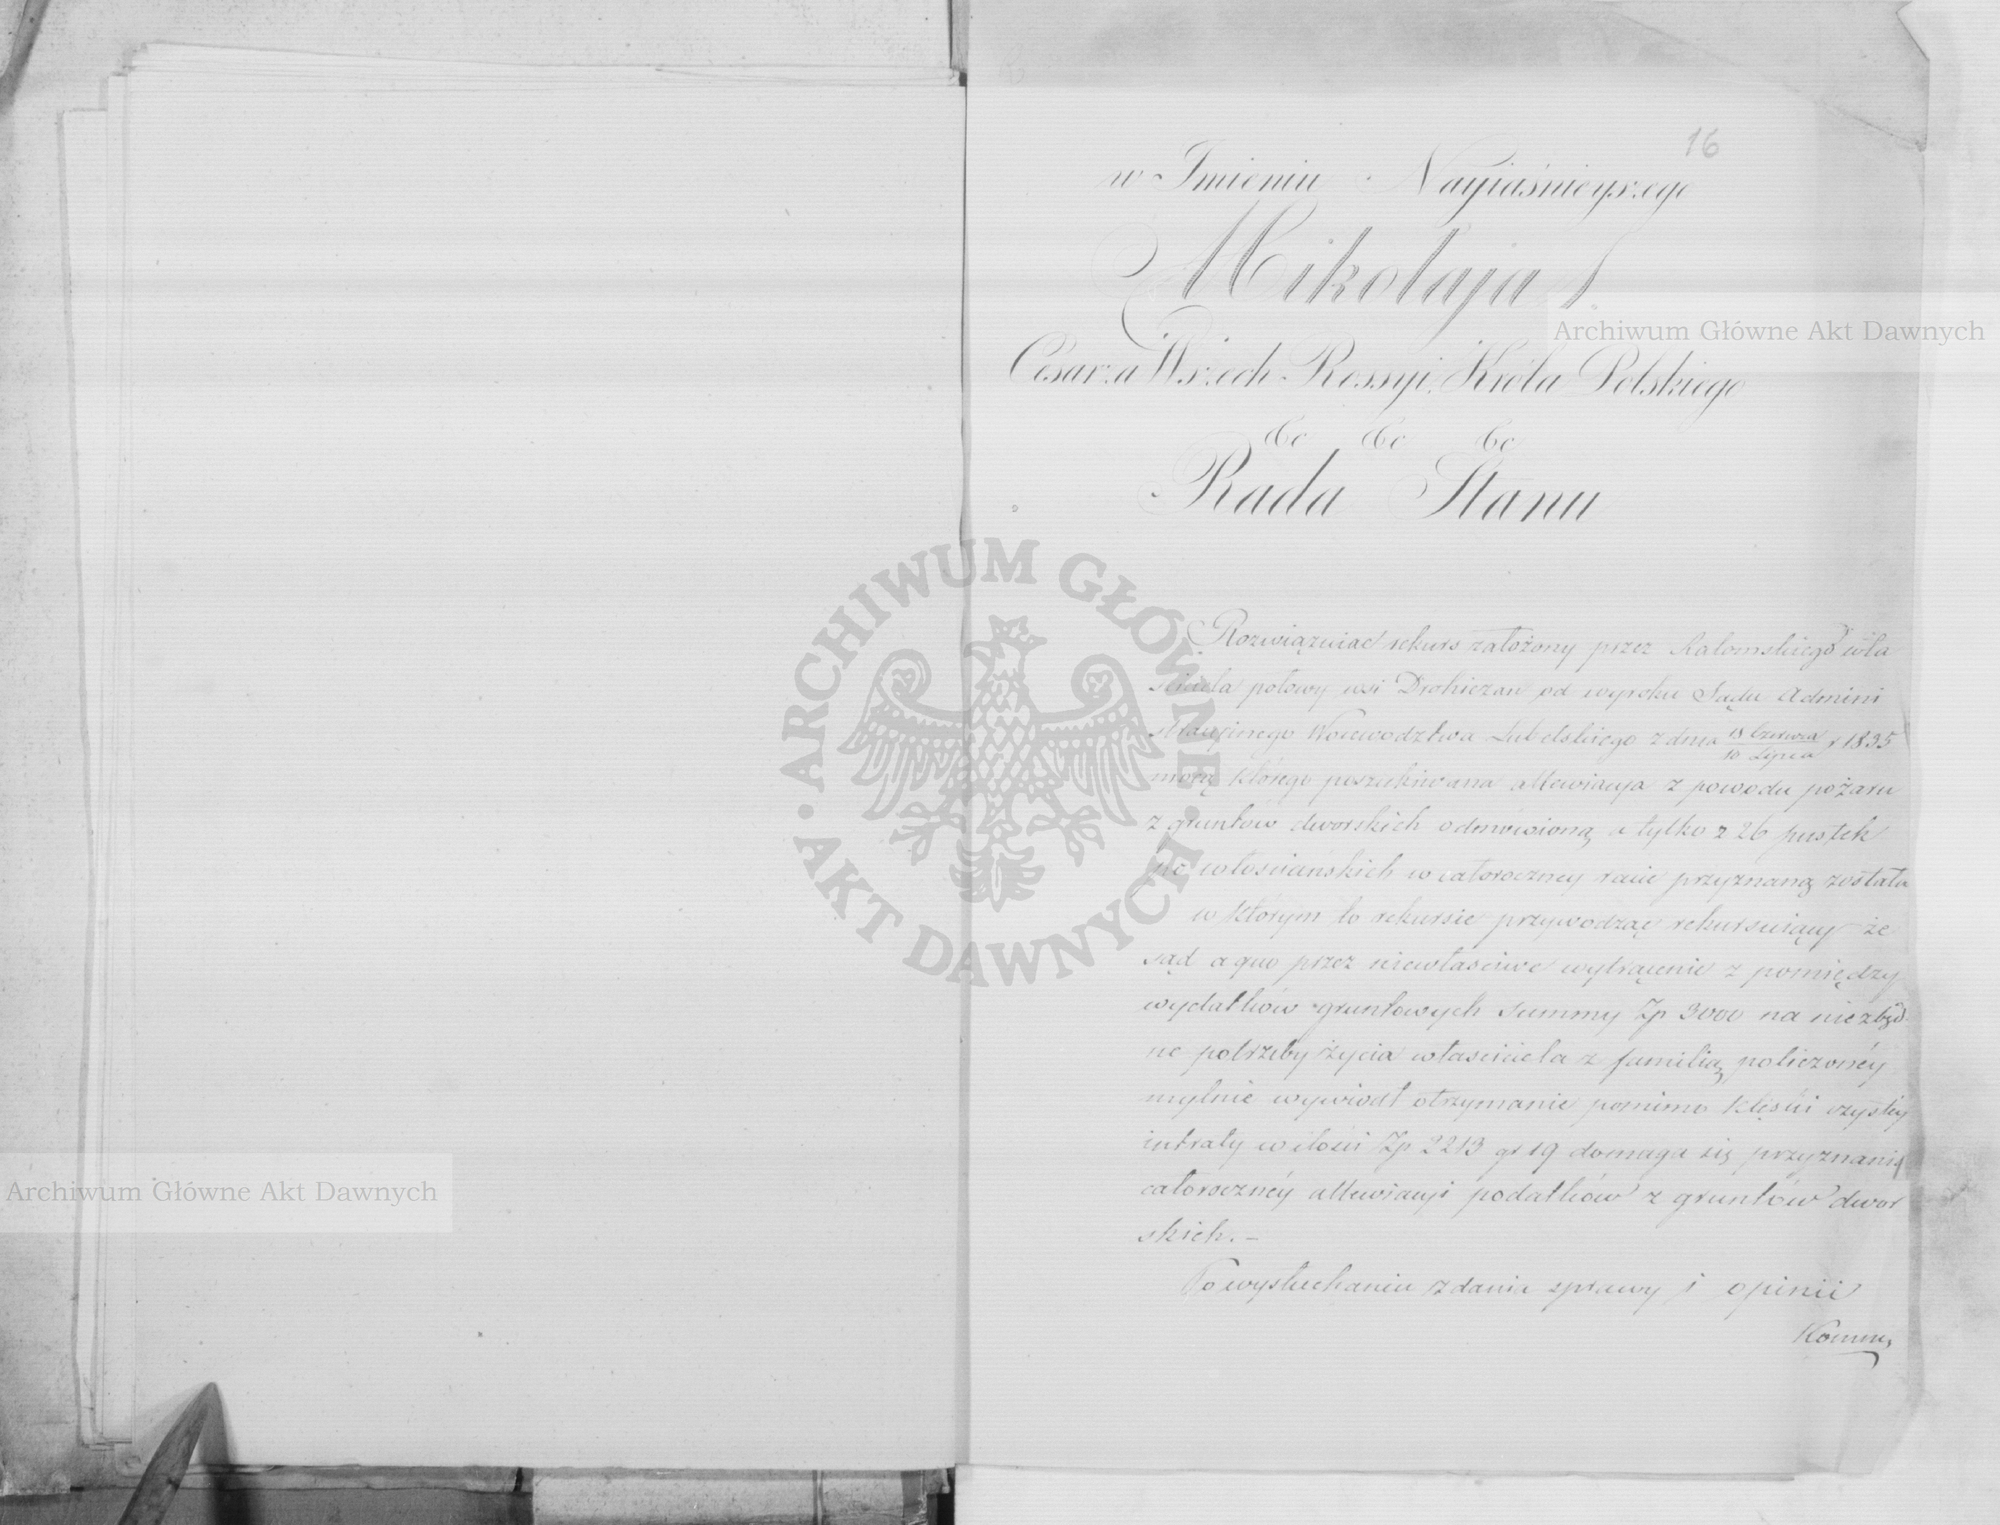 16
w Imieniu Nayiaśnieyszego
Mikołaja I.
Cesarza Wszech Rossyi, Króla Polskiego
&c &c &c
Rada Stanu
Rozwiązuiąc rekurs założony przez Kałomskiego wła
ściciela połowy wsi Drohiczan od wyroku Sądu Admini
stracyinego Województwa Lubelskiego z dnia 18 Czerwca / 10 Lipca r 1835
mocą którego poszukiwana allewiacya z powodu pożaru
z gruntów dworskich odmówioną a tylko z 26 pustek
po włościańskich w całoroczney racie przyznaną została
w którym to rekursie przywodząc rekursuiący że
sąd a quo przez niewłaściwe wytrącenie z pomiędzy
wydatków gruntowych summy Zp 3000 na niezbęd
ne potrzeby życia właściciela z familią policzonéy
mylnie wywiodł otrzymanie pomimo klęski czystéy
intraty w ilości Zp 2213 gr 19 domaga się przyznania
całorocznéy allewiacyi podatków z gruntów dwor
skich. –
Po wysłuchaniu zdania sprawy i opinii
Kommis
Archiwum Główne Akt Dawnych
Archiwum Główne Akt Dawnych
ARCHIWUM GŁÓWNE · AKT DAWNYCH ·